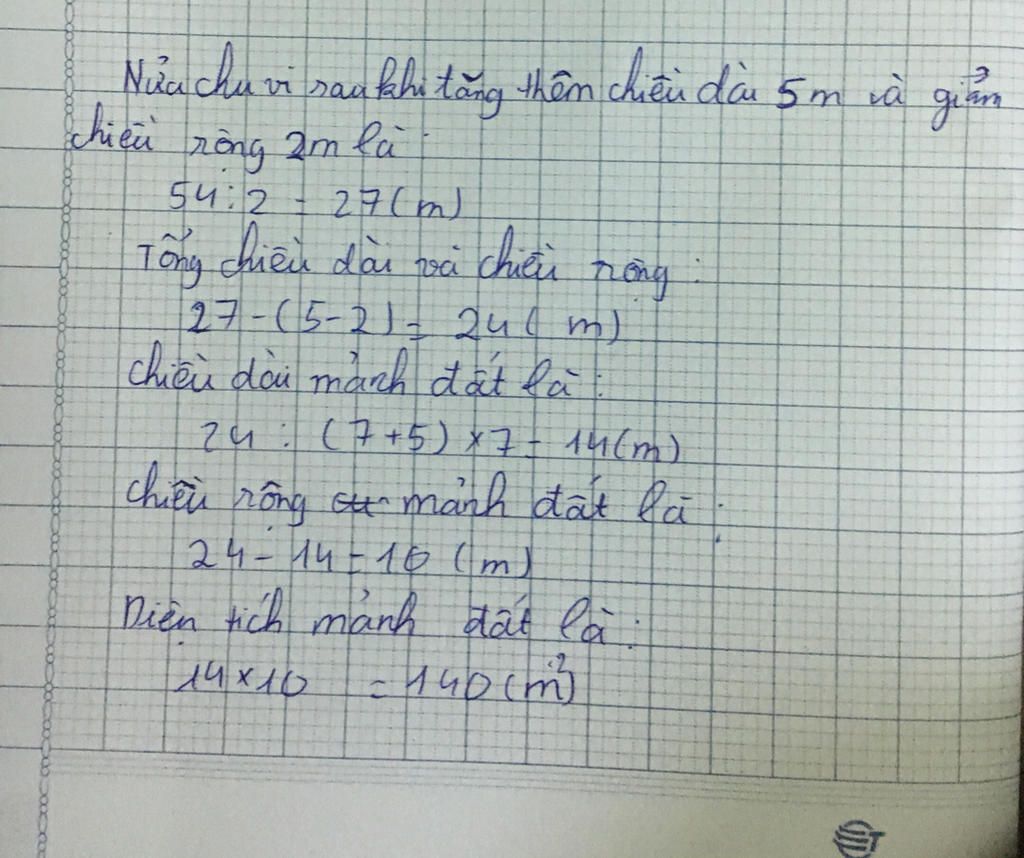 Nửa chu vi sau khi tăng thêm chiều dài 5m và giảm
chiều rộng 2m là:
54 : 2 = 27 (m)
Tổng chiều dài và chiều rộng :
27 - (5 - 2) = 24 ( m)
chiều dài mảnh đất là :
24 : (7 + 5) × 7 = 14 (m)
chiều rộng mảnh đất là :
24 - 14 = 10 (m)
Diện tích mảnh đất là :
14 × 10 = 140 (m²)